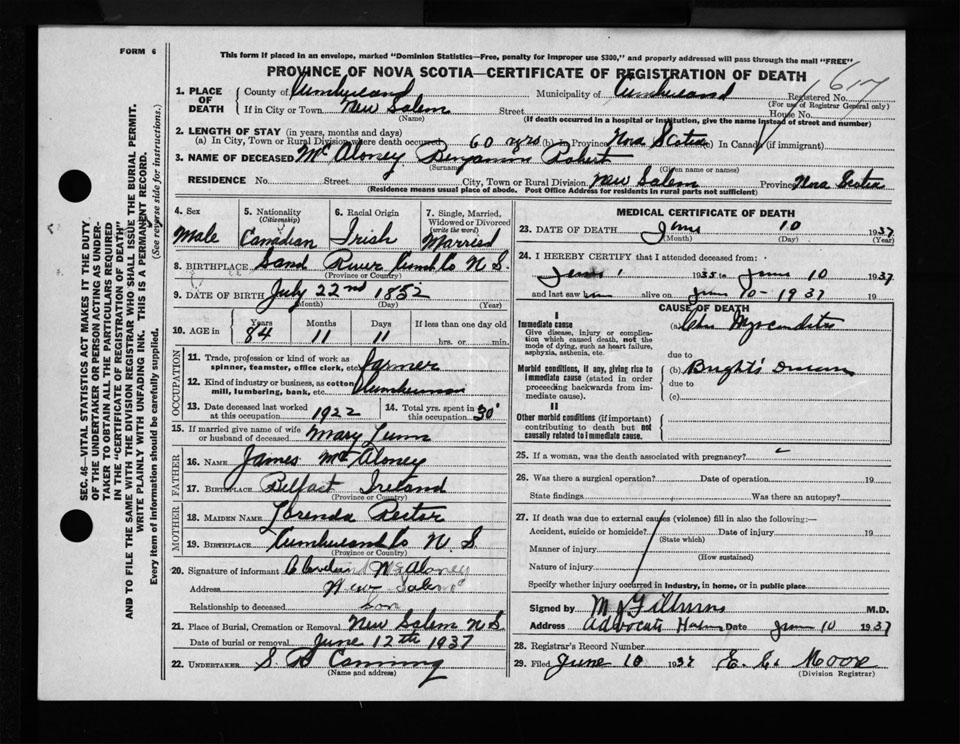 FORM 6
This form if placed in an envelope, marked "Dominion Statistics—Free, penalty for improper use $300," and properly addressed will pass through the mail "FREE"
PROVINCE OF NOVA SCOTIA—CERTIFICATE OF REGISTRATION OF DEATH
617
1. PLACE OF DEATH
County of Cumberland Municipality of Cumberland Registered No.
(For use of Registrar General only)
If in City or Town New Salem Street House No.
(Name) (If death occurred in a hospital or institution, give the name instead of street and number)
2. LENGTH OF STAY (in years, months and days)
(a) In City, Town or Rural Division where death occurred 60 yrs (b) in Province Nova Scotia (c) In Canada (if immigrant)
3. NAME OF DECEASED McAloney Benjamin Robert
(Surname) (Given name or names)
RESIDENCE No. Street City, Town or Rural Division New Salem Province Nova Scotia
(Residence means usual place of abode. Post Office Address for residents in rural parts not sufficient)
4. Sex 5. Nationality (Citizenship) 6. Racial Origin 7. Single, Married, Widowed or Divorced (write the word)
Male Canadian Irish Married
8. BIRTHPLACE Sand River Cumb Co N.S.
(Province or Country)
9. DATE OF BIRTH July 22nd 1852
(Month) (Day) (Year)
10. AGE in Years Months Days If less than one day old
84 11 11 hrs. or min.
OCCUPATION
11. Trade, profession or kind of work as spinner, teamster, office clerk, etc. farmer
12. Kind of industry or business, as cotton mill, lumbering, bank, etc.
13. Date deceased last worked at this occupation 1922 14. Total yrs. spent in this occupation 30
15. If married give name of wife or husband of deceased Mary Lunn
FATHER
16. NAME James McAloney
17. BIRTHPLACE Belfast Ireland
(Province or Country)
MOTHER
18. MAIDEN NAME Lorenda Rector
19. BIRTHPLACE Cumberland Co N.S.
(Province or Country)
20. Signature of informant Cleveland McAloney
Address New Salem
Relationship to deceased Son
21. Place of Burial, Cremation or Removal New Salem N S.
Date of burial or removal June 12th 1937
22. UNDERTAKER S. B Canning
(Name and address)
MEDICAL CERTIFICATE OF DEATH
23. DATE OF DEATH June 10 1937
(Month) (Day) (Year)
24. I HEREBY CERTIFY that I attended deceased from:
June 1 1935 to June 10 1937
and last saw him alive on June 10 - 1937 19
CAUSE OF DEATH
I
Immediate cause (a) Chr Myocarditis
Give disease, injury or complication which caused death, not the mode of dying, such as heart failure, asphyxia, asthenia, etc.
due to
Morbid conditions, if any, giving rise to immediate cause (stated in order proceeding backwards from immediate cause).
(b) Bright's Disease
due to
(c)
II
Other morbid conditions (if important) contributing to death but not causally related to immediate cause.
25. If a woman, was the death associated with pregnancy?
26. Was there a surgical operation? Date of operation 19
State findings Was there an autopsy?
27. If death was due to external causes (violence) fill in also the following:—
Accident, suicide or homicide? Date of injury 19
(State which)
Manner of injury
(How sustained)
Nature of injury
Specify whether injury occurred in Industry, in home, or in public place
Signed by M.D.
Address Advocate Date June 10 1937
28. Registrar's Record Number
29. Filed June 10 1937 E. C. Moore
(Division Registrar)
SEC. 46—VITAL STATISTICS ACT MAKES IT THE DUTY
OF THE UNDERTAKER OR PERSON ACTING AS UNDER-
TAKER TO OBTAIN ALL THE PARTICULARS REQUIRED
IN THE "CERTIFICATE OF REGISTRATION OF DEATH"
AND TO FILE THE SAME WITH THE DIVISION REGISTRAR WHO SHALL ISSUE THE BURIAL PERMIT.
WRITE PLAINLY WITH UNFADING INK. THIS IS A PERMANENT RECORD.
Every item of information should be carefully supplied. (See reverse side for instructions.)